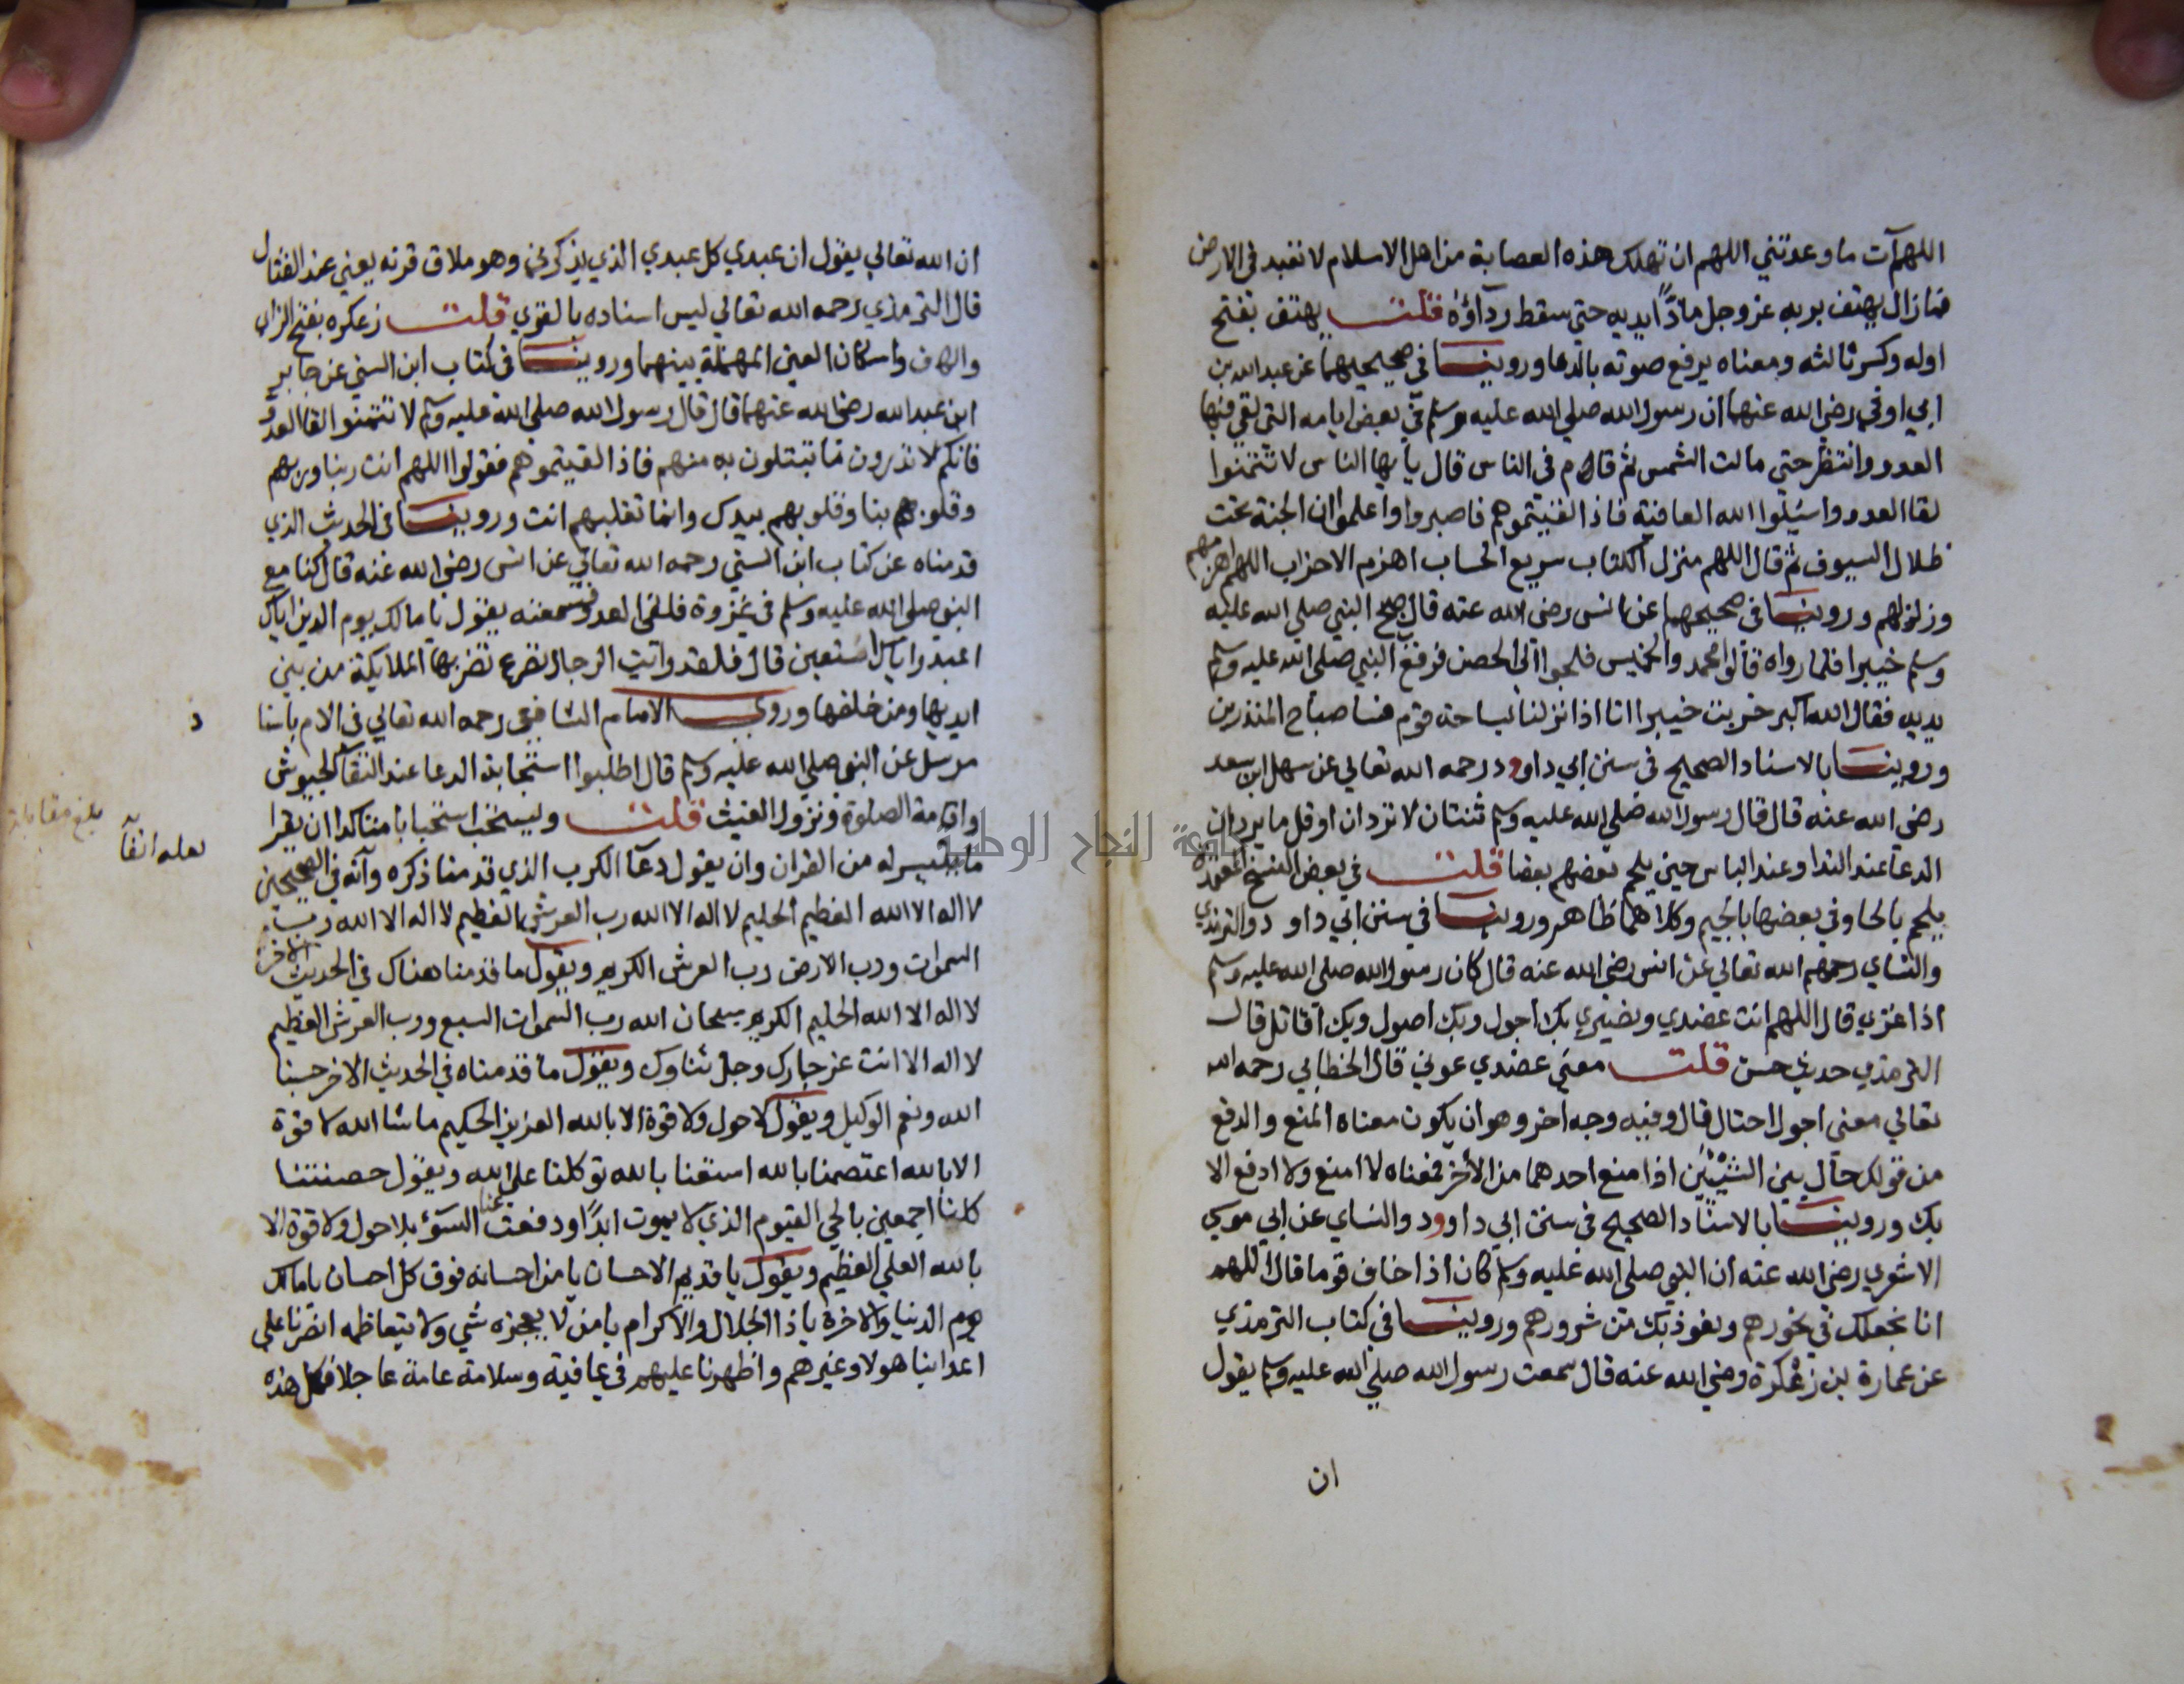 اللهم آت ما وعدتني اللهم ان تهلك هذه العصابة من اهل الاسلام لا تعبد في الارض
فما زال يهتف بربه عز وجل مادًّا يديه حتي سقط رداؤه قلت يهتف بفتح
اوله وكسر ثالثه ومعناه يرفع صوته بالدعا وروينا في صحيحيهما عن عبد الله بن
ابي اوفي رضي الله عنهما ان رسول الله صلي الله عليه وسلم في بعض ايامه التي لقي فيها
العدو وانتظر حتي مالت الشمس ثم قام في الناس قال يا ايها الناس لا تتمنوا
لقا العدو واسئلوا الله العافية فاذا لقيتموهم فاصبروا واعلموا ان الجنة تحت
ظلال السيوف ثم قال اللهم منزل الكتاب سريع الحساب اهزم الاحزاب اللهم اهزمهم
وزلزلهم وروينا في صحيحهما عن انس رضي الله عنه قال صبح النبي صلي الله عليه
وسلم خيبرا فلما رواه قالوا محمد والخميس فلجوا الي الحصن فرفع النبي صلي الله عليه وسلم
يديه فقال الله اكبر خربت خيبر انا اذا نزلنا بساحة قوم فسا صباح المنذرين
وروينا بالاسناد الصحيح في سنن ابي داود رحمه الله تعالي عن سهل ابن سعد
رضي الله عنه قال قال رسول الله صلي الله عليه وسلم ثنتان لا تردان او قل ما يردان
الدعا عند الندا وعند الباس حين يلحم بعضهم بعضا قلت في بعض النسخ المعتمدة
يلحم بالحا وفي بعضها بالجيم وكلاهما ظاهر وروينا في سنن ابي داود والترمذي
والنساي رحمهم الله تعالي عن انس رضي الله عنه قال كان رسول الله صلي الله عليه وسلم
اذا غزي قال اللهم انت عضدي ونصيري بك اجول وبك اصول وبك اقاتل قال
الترمذي حديث حسن قلت معني عضدي عوني قال الخطابي رحمه الله
تعالي معني اجول احتال قال وفيه وجه اخر وهو ان يكون معناه المنع والدفع
من قولك حال بين الشيئين اذا منع احدهما من الاخر فمعناه لا امنع ولا ادفع الا
بك وروينا بالاسناد الصحيح في سنن ابي داوود والنساي عن ابي موسي
الاشعري رضي الله عنه ان النبي صلي الله عليه وسلم كان اذا خاف قوما قال اللهم
انا نجعلك في نحورهم ونعوذ بك من شرورهم وروينا في كتاب الترمذي
عن عمارة بن زعكرة رضي الله عنه قال سمعت رسول الله صلي الله عليه وسلم يقول
ان
ان الله تعالي يقول ان عبدي كل عبدي الذي يذكرني وهو ملاق قرنه يعني عند القتال
قال الترمذي رحمه الله تعالي ليس اسناده بالقوي قلت زعكره بفتح الزاي
والكاف واسكان العين المهملة بينهما وروينا في كتاب ابن السني عن جابر
ابن عبد الله رضي الله عنهما قال قال رسول الله صلي الله عليه وسلم لا تتمنوا لقا العدو
فانكم لا تدرون ما تبتلون به منهم فاذا لقيتموهم فقولوا اللهم انت ربنا وربهم
وقلوبنا وقلوبهم بيدك وانما تغلبهم انت وروينا في الحديث الذي
قدمناه عن كتاب ابن السني رحمه الله تعالي عن انس رضي الله عنه قال كنا مع
النبي صلي الله عليه وسلم في غزوة فلقي العدو فسمعته يقول يا مالك يوم الدين اياك
اعبد واياك استعين قال فلقد رايت الرجال تصرع تضربها الملايكة من بين
ايديها ومن خلفها وروي الامام الشافعي رحمه الله تعالي في الام باسنا
د
مرسل عن النبي صلي الله عليه وسلم قال اطلبوا استجابة الدعا عند التقآ الجيوش
واقامة الصلوة ونزول الغيث قلت ويستحب استحبابا متاكدا ان يقرا
ما تيسر له من القران وان يقول دعآ الكرب الذي قدمنا ذكره وآنه في الصحيحين
بلغ مقابلة
لعله انفآ
لا اله الا الله العظيم الحليم لا اله الا الله رب العرش العظيم لا اله الا الله رب
السموات ورب الارض رب العرش الكريم ويقول ما قدمنا هناك في الحديث الاخر
لا اله الا الله الحليم الكريم سبحان الله رب السموات السبع ورب العرش العظيم
لا اله الا انت عز جارك وجل ثناوك ويقول ما قدمناه في الحديث الاخر حسبنا
الله ونعم الوكيل ويقول لا حول ولا قوة الا بالله العزيز الحكيم ما شا الله لا قوة
الا بالله اعتصمنا بالله استعنا بالله توكلنا علي الله ويقول حصنتنا
كلنا اجمعين بالحي القيوم الذي لا يموت ابدًا ودفعت عنا السوء بلا حول ولا قوة الا
بالله العلي العظيم ويقول يا قديم الاحسان يا من احسانه فوق كل احسان يا مالك
يوم الدنيا والاخرة يا ذا الجلال والاكرام يا من لا يعجزه شي ولا يتعاظمه انصرنا علي
اعداينا هولا وغيرهم واظهرنا عليهم في عافية وسلامة عامة عاجلا فكل هذه
جامعة النجاح الوطنية